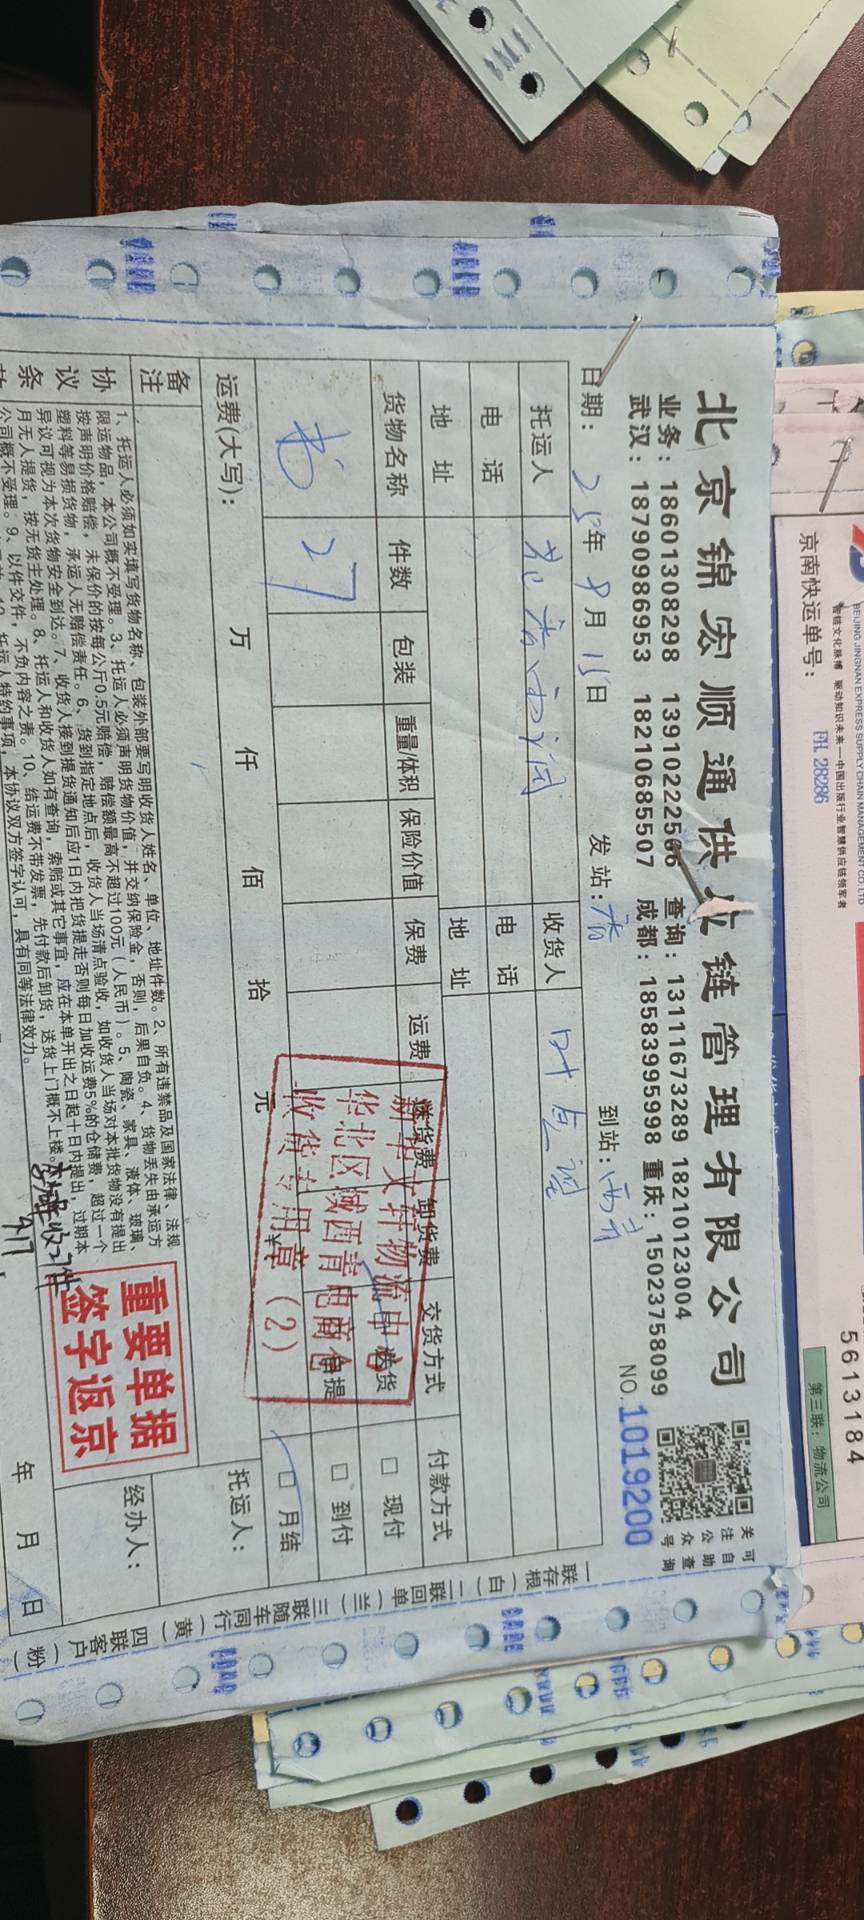 北京锦宏顺通供应链管理有限公司
业务：18601308298 13910222566 查询：13111673289 18210123004
武汉：18790986953 18210685507 成都：18583995998 重庆：15023758099
关注公众号
可自助查询
NO.1019200
日期：25年9月15日 发站： 到站：西青
托运人 收货人
电话 电话
地址 地址
货物名称 件数 包装 重量/体积 保险价值 保费 运费 送货费 卸货费 交货方式 付款方式
书 27 送货 □ 现付
自提 □ 到付
□ 月结
新华文轩物流中心
华北区域西青电商仓
收货专用章（2）
运费(大写)： 万 仟 佰 拾 元 ¥
备注
托运人：
经办人：
协议条款
1、托运人必须如实填写货物名称、包装外部要写明收货人姓名、单位、地址件数。2、所有违禁品及国家法律、法规
限运物品，本公司概不受理。3、托运人必须声明货物价值，并交纳保险金，否则，后果自负。4、货物丢失由承运方
按声明价格赔偿，未保价的按每公斤0.5元赔偿，赔偿额最高不超过100元（人民币）。5、陶瓷、家具、液体、玻璃、
塑料等易损货物，承运人无赔偿责任。6、货到指定地点后，收货人当场清点验收，如收货人当场对本批货物没有提出
异议可视为本次货物安全到达。7、收货人接到提货通知后应1日内把货提走否则每日加收运费5%的仓储费，超过一个
月无人提货，按无货主处理。8、托运人和收货人如有查询，索赔或其它事宜，应在本单开出之日起十日内提出，过期本
公司概不受理。9、以件交件，不负内容之责。10、结运费不带发票，先付款后卸货，送货上门概不上楼。
托运人特约事项，本协议双方签字认可，具有同等法律效力。
收27件
9.17
重要单据
签字返京
年 月 日
一联存根（白） 二联回单（兰） 三联随车同行（黄） 四联客户（粉）
BEIJING JINGNAN EXPRESS SUPPLY CHAIN MANAGEMENT CO.,LTD
智链文化脉搏 驱动知识未来—中国出版行业智慧供应链领军者
京南快运单号：
FH.28286
5613184
第三联：物流公司